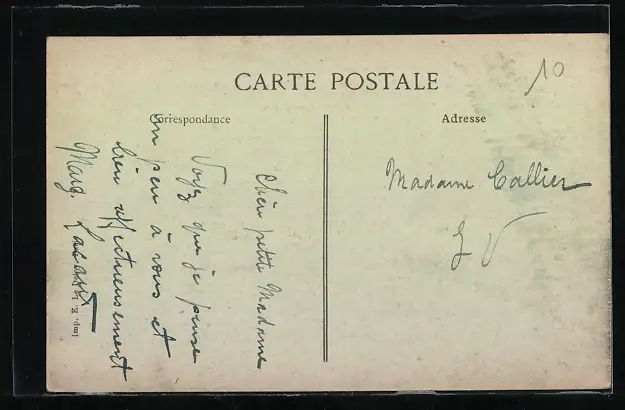 CARTE POSTALE
10
Correspondance
Adresse
Chère petite Madame
Voyez que je pense
un peu à vous et
bien affectueusement
Marg.
Madame Callier
E V
Imp. E. L.